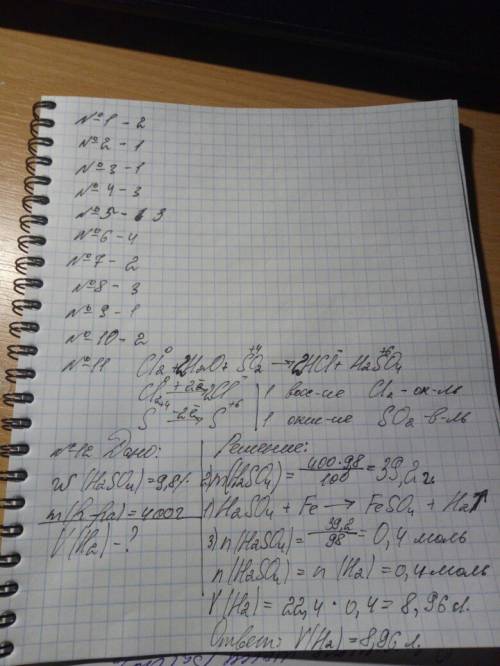 №1 - 2
№2 - 1
№3 - 1
№4 - 3
№5 - 3
№6 - 4
№7 - 2
№8 - 3
№9 - 1
№10 - 2
№11 Cl₂⁰ + 2H₂O + S⁺⁴O₂ → 2HCl⁻ + H₂S⁺⁶O₄
Cl₂⁰ +2ē→ 2Cl⁻ | 1 вос-ие Cl₂ - ок-ль
S⁺⁴ -2ē→ S⁺⁶ | 1 окис-ие SO₂ - в-ль
№12 Дано:
w(H₂SO₄) = 9,8%
m(р-ра) = 400г
V(H₂) - ?
Решение:
2) m(H₂SO₄) = 400·98/100 = 39,2 г.
1) H₂SO₄ + Fe → FeSO₄ + H₂↑
3) n(H₂SO₄) = 39,2/98 = 0,4 моль
n(H₂SO₄) = n(H₂) = 0,4 моль
V(H₂) = 22,4 · 0,4 = 8,96 л.
Ответ: V(H₂) = 8,96 л.